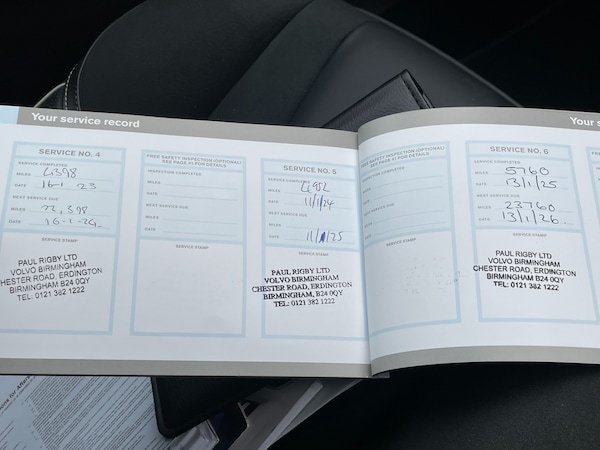 Your service record
Your s
SERVICE NO. 4
SERVICE COMPLETED
MILES 4398
DATE 16-1 23
NEXT SERVICE DUE
MILES 22,398
DATE 16-1-24
SERVICE STAMP
PAUL RIGBY LTD
VOLVO BIRMINGHAM
CHESTER ROAD, ERDINGTON
BIRMINGHAM B24 0QY
TEL: 0121 382 1222
FREE SAFETY INSPECTION (OPTIONAL)
SEE PAGE 41 FOR DETAILS
INSPECTION COMPLETED
MILES
DATE
NEXT SERVICE DUE
MILES
DATE
SERVICE STAMP
SERVICE NO. 5
SERVICE COMPLETED
MILES 4952
DATE 11/1/24
NEXT SERVICE DUE
MILES
DATE 11/1/25
SERVICE STAMP
PAUL RIGBY LTD
VOLVO BIRMINGHAM
CHESTER ROAD, ERDINGTON
BIRMINGHAM, B24 0QY
TEL: 0121 382 1222
FREE SAFETY INSPECTION (OPTIONAL)
SEE PAGE 41 FOR DETAILS
INSPECTION COMPLETED
MILES
DATE
NEXT SERVICE DUE
MILES
DATE
SERVICE STAMP
SERVICE NO. 6
SERVICE COMPLETED
MILES 5760
DATE 13/1/25
NEXT SERVICE DUE
MILES 23760
DATE 13/1/26
SERVICE STAMP
PAUL RIGBY LTD
VOLVO BIRMINGHAM
CHESTER ROAD, ERDINGTON
BIRMINGHAM, B24 0QY
TEL: 0121 382 1222